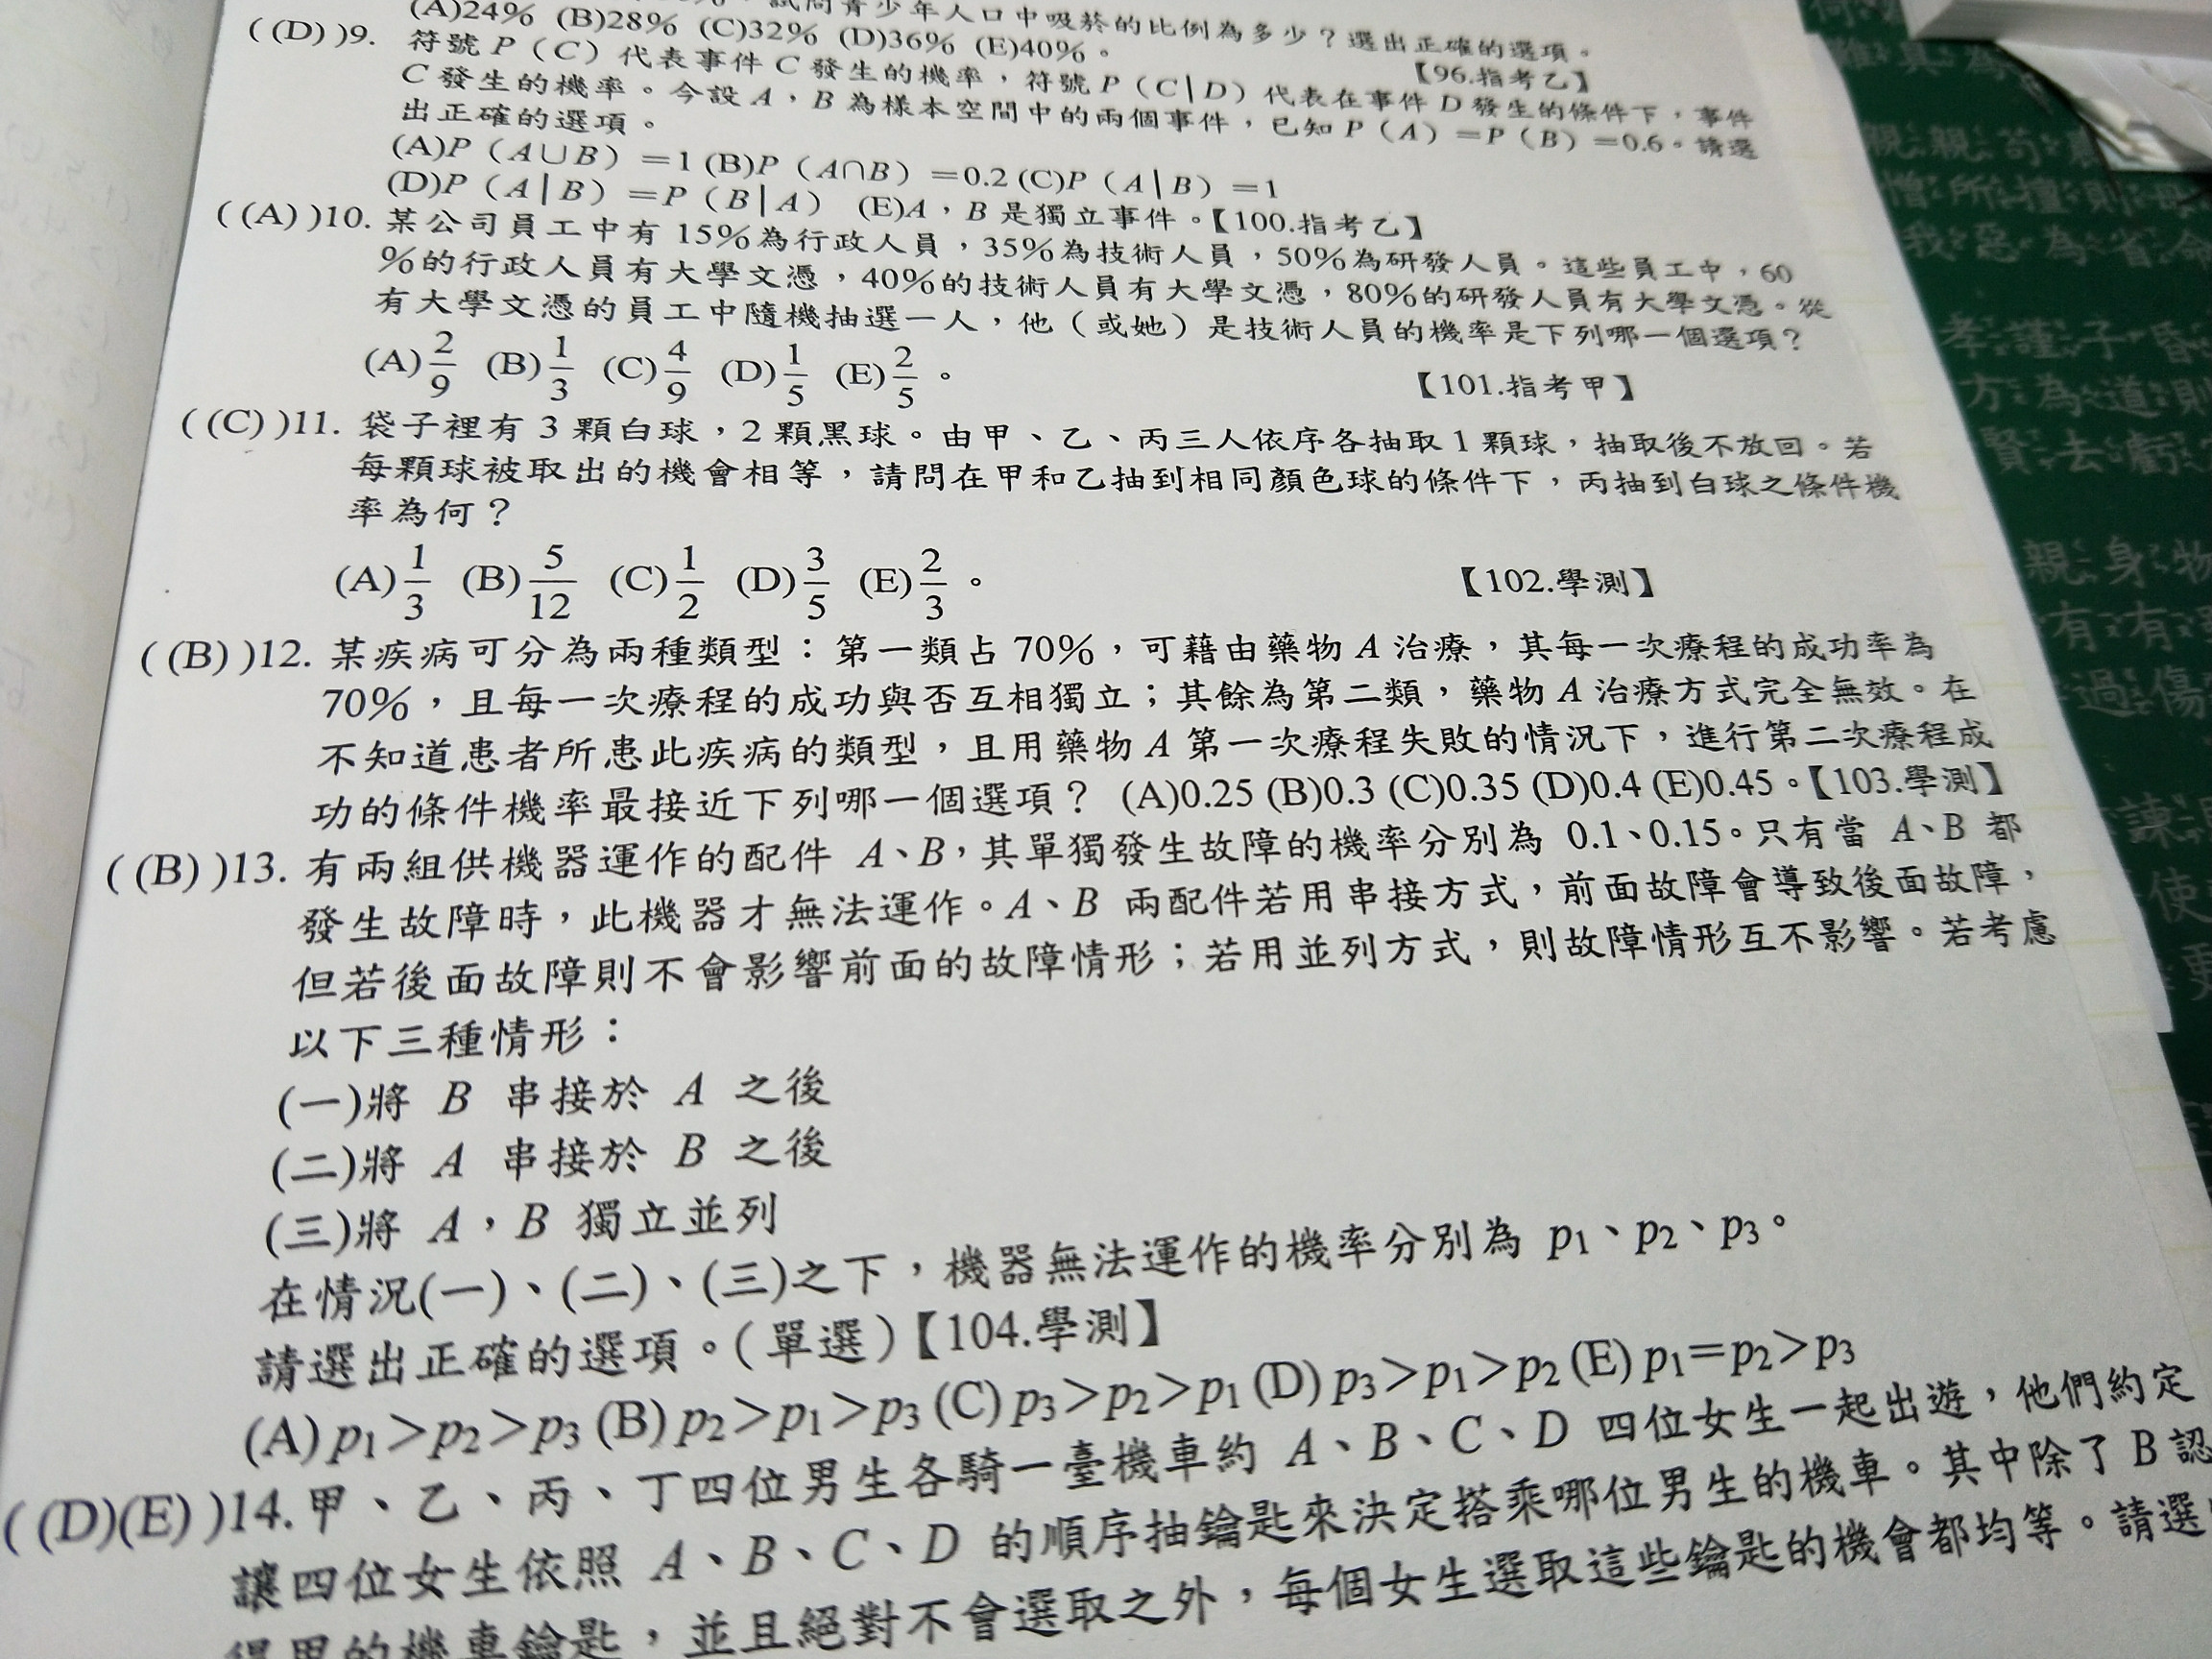 試問青少年人口中吸菸的比例為多少？選出正確的選項。
(A)24% (B)28% (C)32% (D)36% (E)40%。
【96.指考乙】
( (D) )9. 符號 P（C）代表事件 C 發生的機率，符號 P（C|D）代表在事件 D 發生的條件下，事件
C 發生的機率。今設 A，B 為樣本空間中的兩個事件，已知 P（A）=P（B）=0.6。請選
出正確的選項。
(A)P（A∪B）=1 (B)P（A∩B）=0.2 (C)P（A|B）=1
(D)P（A|B）=P（B|A） (E)A，B 是獨立事件。【100.指考乙】
( (A) )10. 某公司員工中有 15%為行政人員，35%為技術人員，50%為研發人員。這些員工中，60
%的行政人員有大學文憑，40%的技術人員有大學文憑，80%的研發人員有大學文憑。從
有大學文憑的員工中隨機抽選一人，他（或她）是技術人員的機率是下列哪一個選項？
(A)2/9 (B)1/3 (C)4/9 (D)1/5 (E)2/5。 【101.指考甲】
( (C) )11. 袋子裡有 3 顆白球，2 顆黑球。由甲、乙、丙三人依序各抽取 1 顆球，抽取後不放回。若
每顆球被取出的機會相等，請問在甲和乙抽到相同顏色球的條件下，丙抽到白球之條件機
率為何？
(A)1/3 (B)5/12 (C)1/2 (D)3/5 (E)2/3。 【102.學測】
( (B) )12. 某疾病可分為兩種類型：第一類占 70%，可藉由藥物 A 治療，其每一次療程的成功率為
70%，且每一次療程的成功與否互相獨立；其餘為第二類，藥物 A 治療方式完全無效。在
不知道患者所患此疾病的類型，且用藥物 A 第一次療程失敗的情況下，進行第二次療程成
功的條件機率最接近下列哪一個選項？ (A)0.25 (B)0.3 (C)0.35 (D)0.4 (E)0.45。【103.學測】
( (B) )13. 有兩組供機器運作的配件 A、B，其單獨發生故障的機率分別為 0.1、0.15。只有當 A、B 都
發生故障時，此機器才無法運作。A、B 兩配件若用串接方式，前面故障會導致後面故障，
但若後面故障則不會影響前面的故障情形；若用並列方式，則故障情形互不影響。若考慮
以下三種情形：
(一)將 B 串接於 A 之後
(二)將 A 串接於 B 之後
(三)將 A，B 獨立並列
在情況(一)、(二)、(三)之下，機器無法運作的機率分別為 p1、p2、p3。
請選出正確的選項。(單選)【104.學測】
(A) p1>p2>p3 (B) p2>p1>p3 (C) p3>p2>p1 (D) p3>p1>p2 (E) p1=p2>p3
( (D)(E) )14. 甲、乙、丙、丁四位男生各騎一臺機車約 A、B、C、D 四位女生一起出遊，他們約定
讓四位女生依照 A、B、C、D 的順序抽鑰匙來決定搭乘哪位男生的機車。其中除了 B 認
得甲的機車鑰匙，並且絕對不會選取之外，每個女生選取這些鑰匙的機會都均等。請選